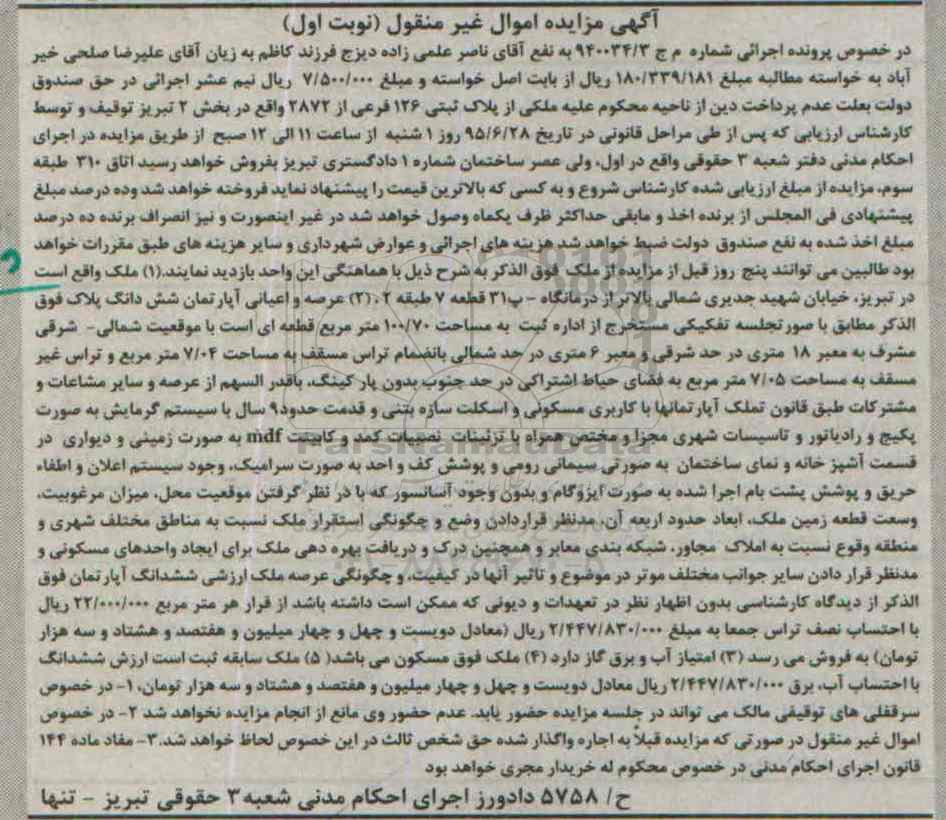 آگهی مزایده اموال غیر منقول (نوبت اول)
در خصوص پرونده اجرائی شماره م ج ۹۴۰۰۳۴/۳ به نفع آقای ناصر علمی زاده دیزج فرزند کاظم به زیان آقای علیرضا صلحی خیر
آباد به خواسته مطالبه مبلغ ۱۸۰/۳۳۹/۱۸۱ ریال از بابت اصل خواسته و مبلغ ۷/۵۰۰/۰۰۰ ریال نیم عشر اجرائی در حق صندوق
دولت بعلت عدم پرداخت دین از ناحیه محکوم علیه ملکی از پلاک ثبتی ۱۲۶ فرعی از ۲۸۷۲ واقع در بخش ۲ تبریز توقیف و توسط
کارشناس ارزیابی که پس از طی مراحل قانونی در تاریخ ۹۵/۶/۲۸ روز ۱ شنبه از ساعت ۱۱ الی ۱۲ صبح از طریق مزایده در اجرای
احکام مدنی دفتر شعبه ۳ حقوقی واقع در اول، ولی عصر ساختمان شماره ۱ دادگستری تبریز بفروش خواهد رسید اتاق ۳۱۰ طبقه
سوم، مزایده از مبلغ ارزیابی شده کارشناس شروع و به کسی که بالاترین قیمت را پیشنهاد نماید فروخته خواهد شد وده درصد مبلغ
پیشنهادی فی المجلس از برنده اخذ و مابقی حداکثر ظرف یکماه وصول خواهد شد در غیر اینصورت و نیز انصراف برنده ده درصد
مبلغ اخذ شده به نفع صندوق دولت ضبط خواهد شد هزینه های اجرائی و عوارض شهرداری و سایر هزینه های طبق مقررات خواهد
بود طالبین می توانند پنج روز قبل از مزایده از ملک فوق الذکر به شرح ذیل با هماهنگی این واحد بازدید نمایند.(۱) ملک واقع است
در تبریز، خیابان شهید جدیری شمالی بالاتر از درمانگاه - پ۳۱ قطعه ۷ طبقه ۲ ،(۲) عرصه و اعیانی آپارتمان شش دانگ پلاک فوق
الذکر مطابق با صورتجلسه تفکیکی مستخرج از اداره ثبت به مساحت ۱۰۰/۷۰ متر مربع قطعه ای است با موقعیت شمالی- شرقی
مشرف به معبر ۱۸ متری در حد شرقی و معبر ۶ متری در حد شمالی بانضمام تراس مسقف به مساحت ۷/۰۴ متر مربع و تراس غیر
مسقف به مساحت ۷/۰۵ متر مربع به فضای حیاط اشتراکی در حد جنوب بدون پارکینگ، باقدر السهم از عرصه و سایر مشاعات و
مشترکات طبق قانون تملک آپارتمانها با کاربری مسکونی و اسکلت سازه بتنی و قدمت حدود۹ سال با سیستم گرمایش به صورت
پکیج و رادیاتور و تاسیسات شهری مجزا و مختص همراه با تزئینات نصبیات کمد و کابینت mdf به صورت زمینی و دیواری در
قسمت آشپز خانه و نمای ساختمان به صورتی سیمانی رومی و پوشش کف و احد به صورت سرامیک، وجود سیستم اعلان و اطفاء
حریق و پوشش پشت بام اجرا شده به صورت ایزوگام و بدون وجود آسانسور که با در نظر گرفتن موقعیت محل، میزان مرغوبیت،
وسعت قطعه زمین ملک، ابعاد حدود اربعه آن، مدنظر قراردادن وضع و چگونگی استقرار ملک نسبت به مناطق مختلف شهری و
منطقه وقوع نسبت به املاک مجاور، شبکه بندی معابر و همچنین درک و دریافت بهره دهی ملک برای ایجاد واحدهای مسکونی و
مدنظر قرار دادن سایر جوانب مختلف موثر در موضوع و تاثیر آنها در کیفیت، و چگونگی عرصه ملک ارزشی ششدانگ آپارتمان فوق
الذکر از دیدگاه کارشناسی بدون اظهار نظر در تعهدات و دیونی که ممکن است داشته باشد از قرار هر متر مربع ۲۲/۰۰۰/۰۰۰ ریال
با احتساب نصف تراس جمعا به مبلغ ۲/۴۴۷/۸۳۰/۰۰۰ ریال (معادل دویست و چهل و چهار میلیون و هفتصد و هشتاد و سه هزار
تومان) به فروش می رسد (۳) امتیاز آب و برق گاز دارد (۴) ملک فوق مسکون می باشد( ۵) ملک سابقه ثبت است ارزش ششدانگ
با احتساب آب، برق ۲/۴۴۷/۸۳۰/۰۰۰ ریال معادل دویست و چهل و چهار میلیون و هفتصد و هشتاد و سه هزار تومان، ۱- در خصوص
سرقفلی های توقیفی مالک می تواند در جلسه مزایده حضور یابد. عدم حضور وی مانع از انجام مزایده نخواهد شد ۲- در خصوص
اموال غیر منقول در صورتی که مزایده قبلاً به اجاره واگذار شده حق شخص ثالث در این خصوص لحاظ خواهد شد.۳- مفاد ماده ۱۴۴
قانون اجرای احکام مدنی در خصوص محکوم له خریدار مجری خواهد بود
ح/ ۵۷۵۸ دادورز اجرای احکام مدنی شعبه ۳ حقوقی تبریز - تنها